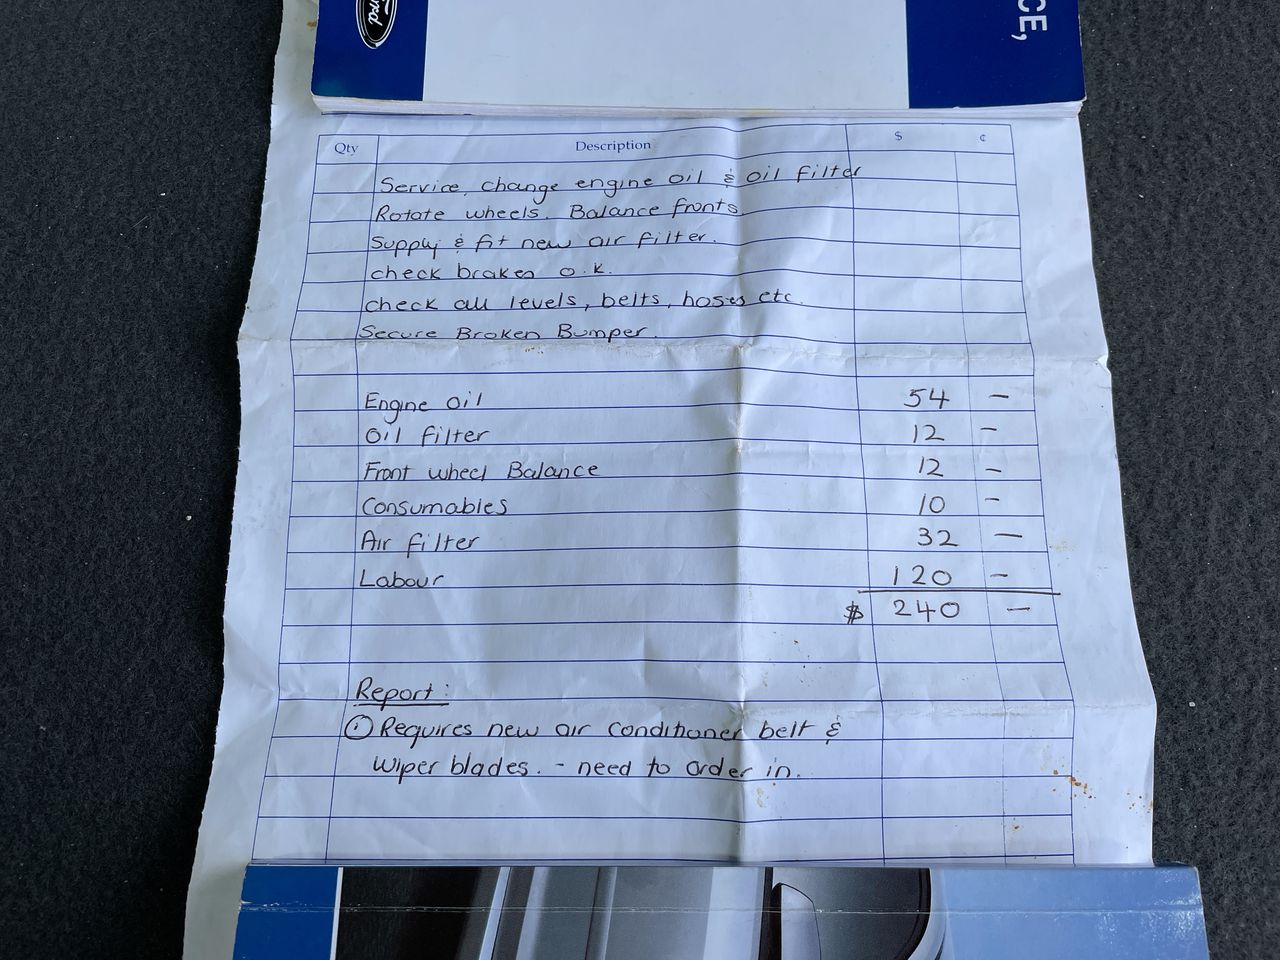 Ford
CE,
Qty Description $ ¢
Service, change engine oil & oil filter
Rotate wheels. Balance fronts.
Supply & fit new air filter.
check brakes o.k.
check all levels, belts, hoses etc.
Secure Broken Bumper.
Engine oil 54 –
Oil filter 12 –
Front wheel Balance 12 –
Consumables 10 –
Air filter 32 –
Labour 120 –
$ 240 –
Report:
① Requires new air conditioner belt &
wiper blades. – need to order in.